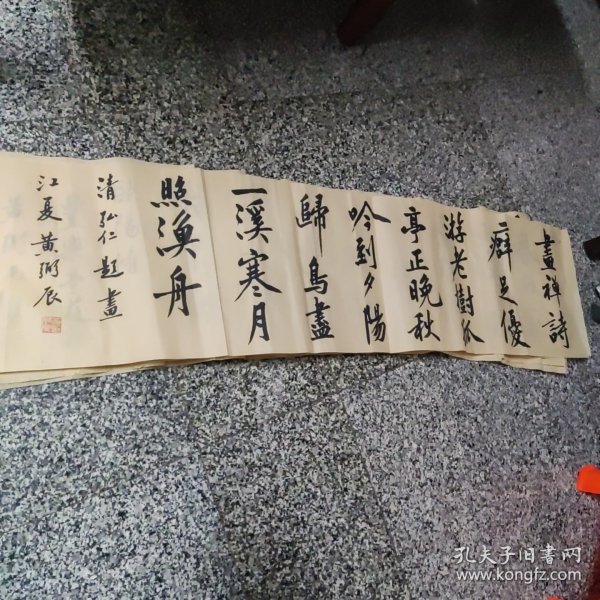 畫禪詩
癖足優
游老樹孤
亭正晚秋
吟到夕陽
歸鳥盡
一溪寒月
照漁舟
清弘仁題畫
江夏黃弼辰
孔夫子旧书网
www.kongfz.com